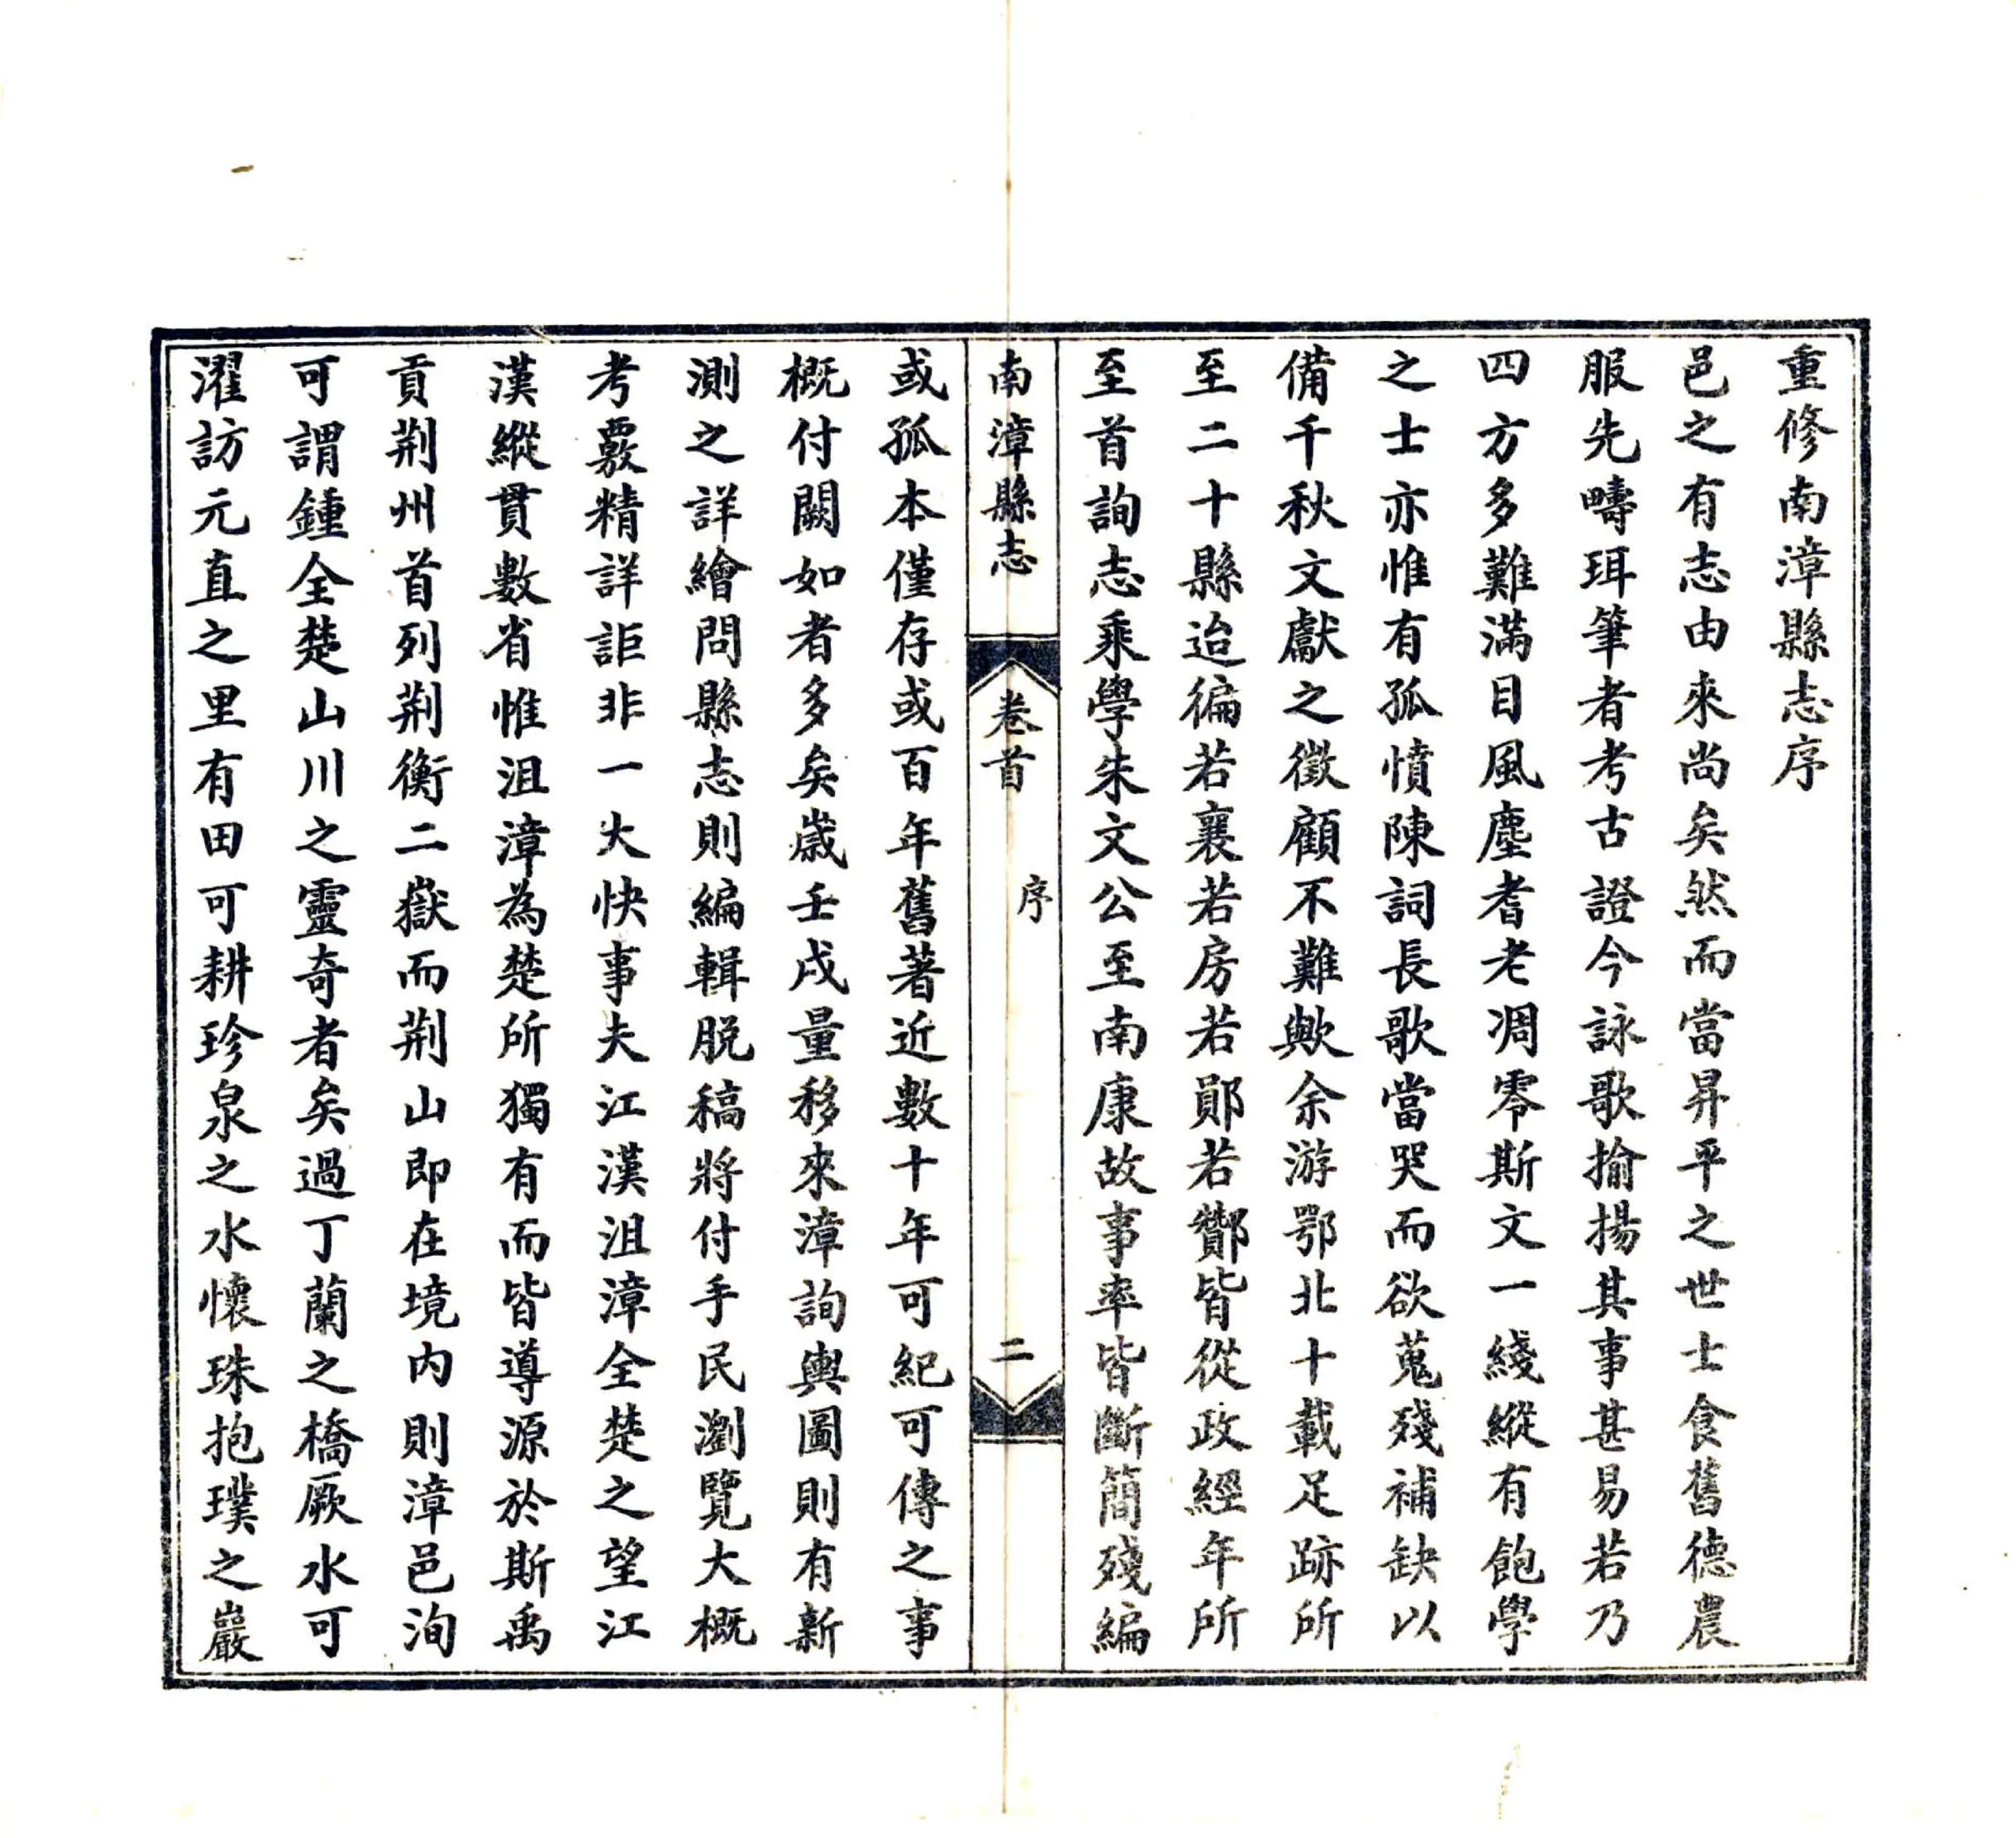 重修南漳縣志序
邑之有志由來尚矣然而當昇平之世士食舊德農
服先疇珥筆者考古證今詠歌揄揚其事甚易若乃
四方多難滿目風塵耆老凋零斯文一綫縱有飽學
之士亦惟有孤憤陳詞長歌當哭而欲蒐殘補缺以
備千秋文獻之徵顧不難歟余游鄂北十載足跡所
至二十縣迨徧若襄若房若鄖若酇皆從政經年所
至首詢志乘學朱文公至南康故事率皆斷簡殘編
南漳縣志
卷首
序
二
或孤本僅存或百年舊著近數十年可紀可傳之事
概付闕如者多矣歲壬戌量移來漳詢輿圖則有新
測之詳繪問縣志則編輯脫稿將付手民瀏覽大概
考覈精詳詎非一大快事夫江漢沮漳全楚之望江
漢縱貫數省惟沮漳為楚所獨有而皆導源於斯禹
貢荆州首列荆衡二嶽而荆山即在境内則漳邑洵
可謂鍾全楚山川之靈奇者矣過丁蘭之橋厥水可
濯訪元直之里有田可耕珍泉之水懷珠抱璞之巖